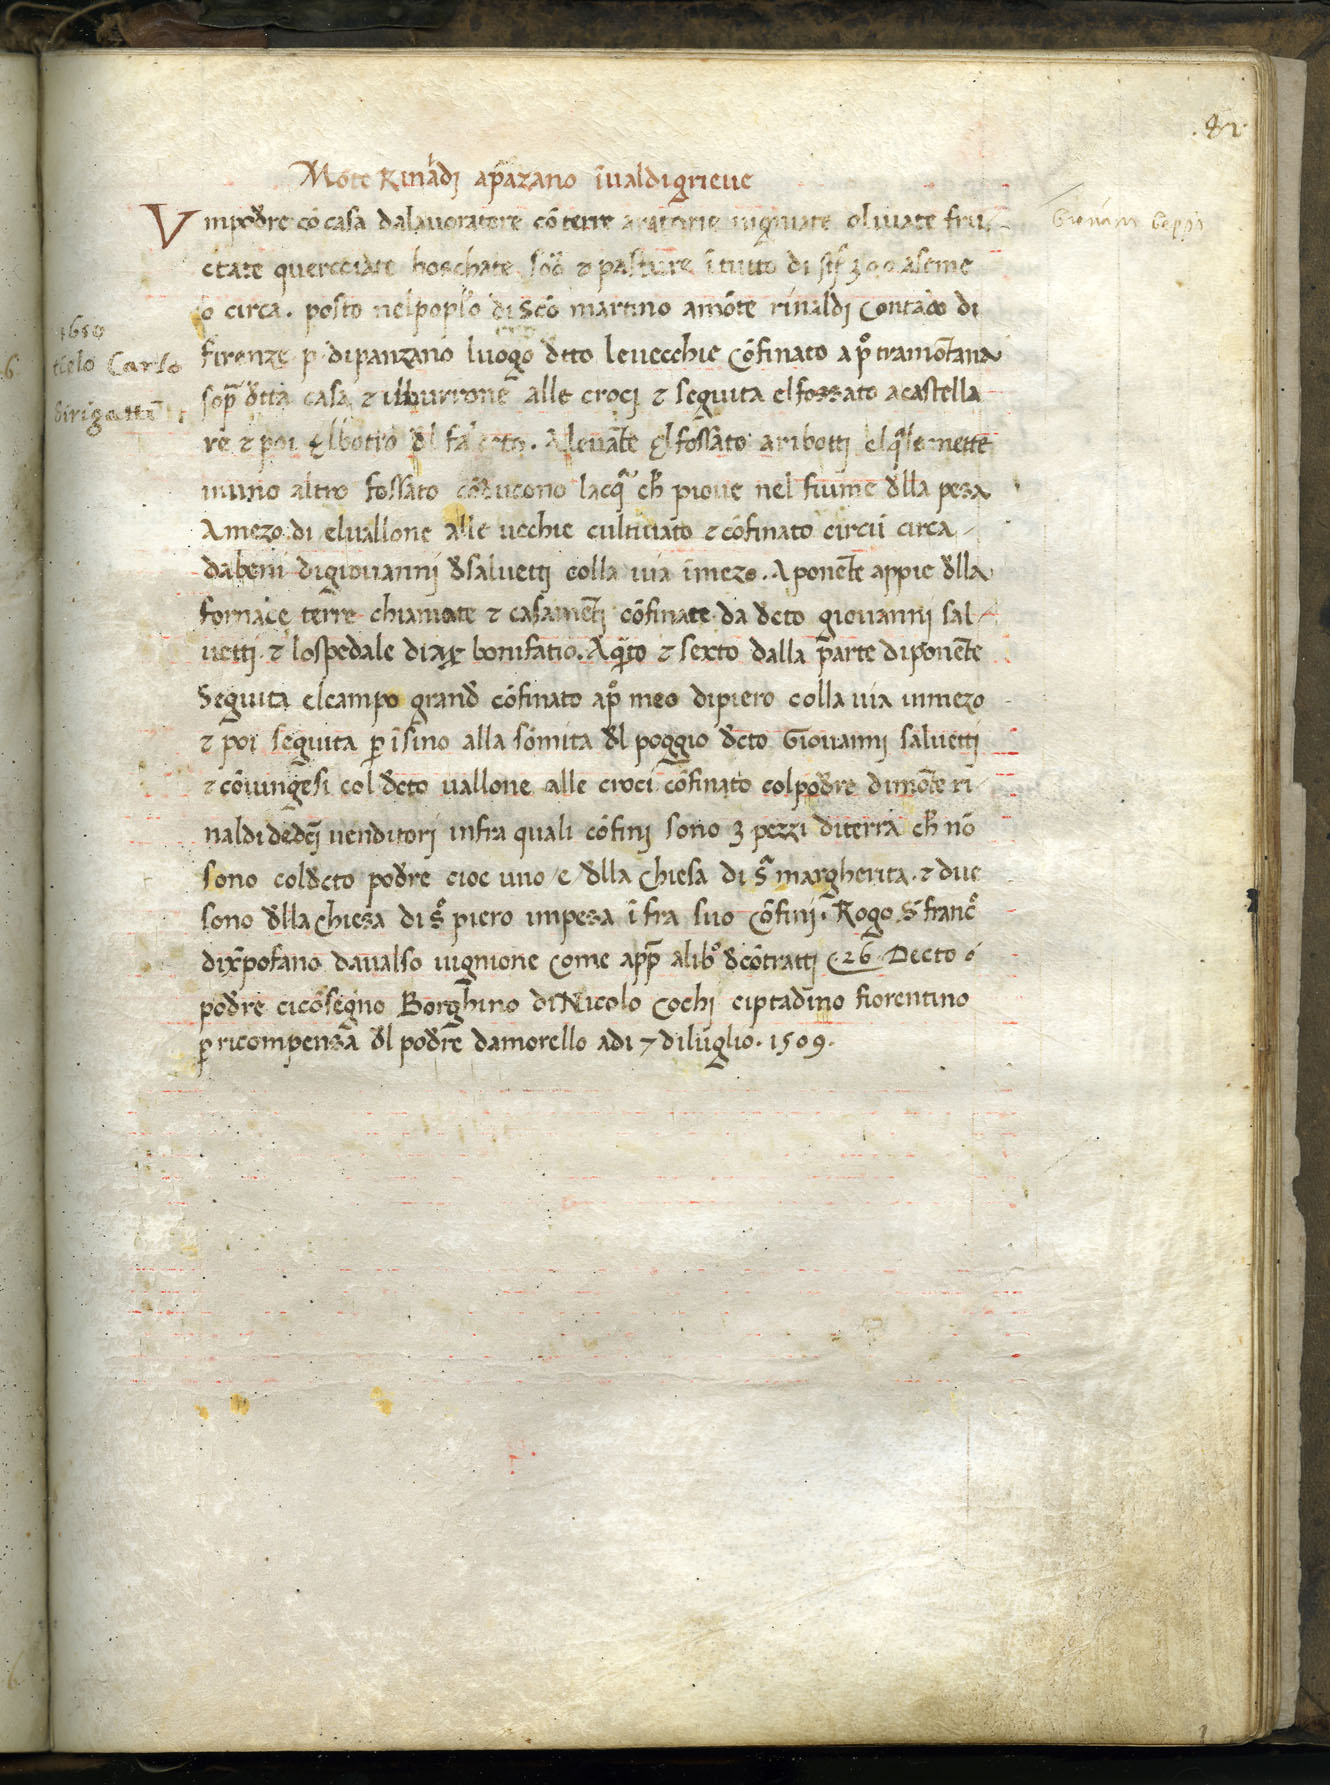 .82.
Mōte Rinaldj apāzano īualdigrieue
Vmpodr̄e cō casa dalauoratore cō terre aratorie uigniate oliuate fru
ctate querciate boschate sode et pasture ī tutto di 300 aseme
o circa. posto nelpoplo di sc̄o martino amōte rinaldj contado di
1650
firenze p. dipanzano luogo dtto leuecchie cōfinato apͦ tramōtana
Carlo
sop̄ dtta casa et ilburrone alle crocj et seguita elfossato acastella
rigatti
re et poi elbotro dl. Aleuāte elfossato aribotti elqle mette
inuno altro fossato cōducono lacq̄ ch̄ pioue nel fiume dlla pesa
Amezo di eluallone alle uechie cultiuato et cōfinato circū circa
dabeni digiouannj dsaluetti colla uia īmezo. Aponēte appie dlla
fornace terre chiamate et casamētj cōfinate da dcto giouannj sal
uettj et lospedale di bonifatio. Aq̄to et sexto dalla p̄arte diponēte
Seguita elcampo grand cōfinato apͦ meo dipiero colla uia inmezo
et poi seguita p̄ īsino alla sōmita dl poggio dcto Giouannj saluettj
et cōiungesi col dcto uallone alle croci cōfinato colpodr̄e dimōte ri
naldi dedcj̄ uenditorj infra quali cōfinj sono 3 pezzi diterra ch̄ nō
sono coldcto podr̄e cioe uno e dlla chiesa di s̄ margherita. et due
sono dlla chiesa di s̄ piero impesa ī fra suo cōfinj. Rogo S franc̄o
dix̄pofano daualso uignione come app̄ alibͦ dcōtratti c 26 Decto
podr̄e cicōsegno Borghino diNicolo cochi ciptadino fiorentino
p̄ ricompensa dl podr̄e damorello adi 7 diluglio. 1509.